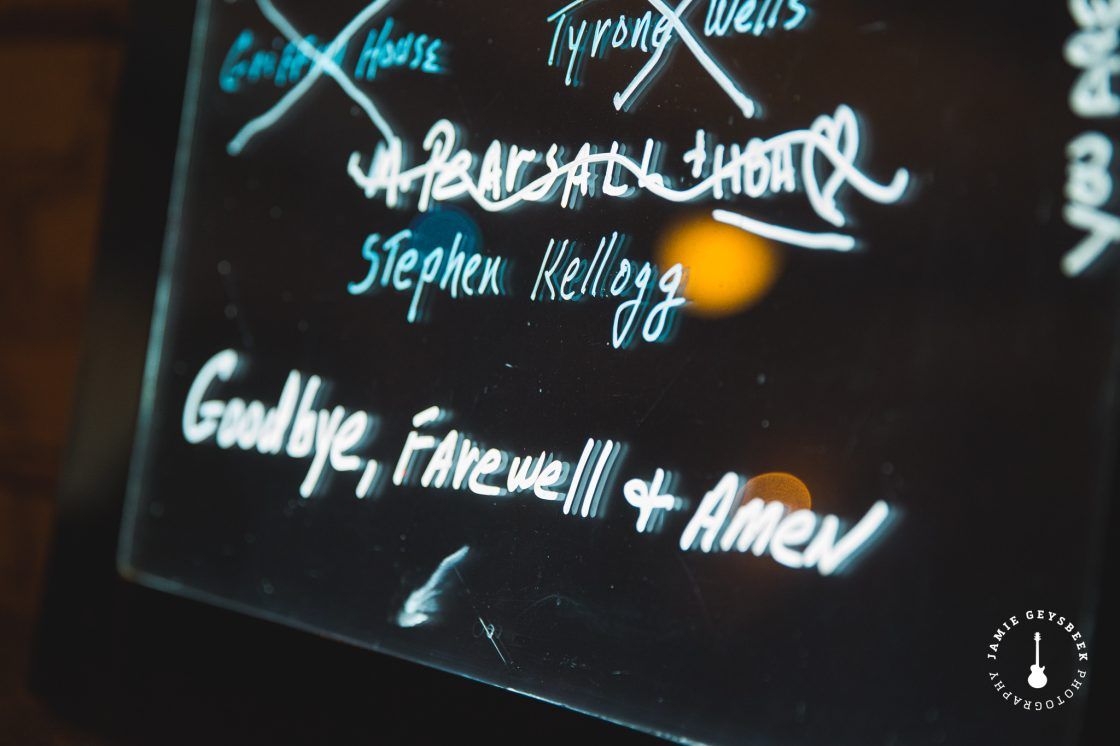 Griffin House
Tyrone Wells
M. PEArSALL + HOAR
STephen Kellogg
Goodbye, FArewell & AmeN
You Are
JAMIE GEYSBEEK PHOTOGRAPHY